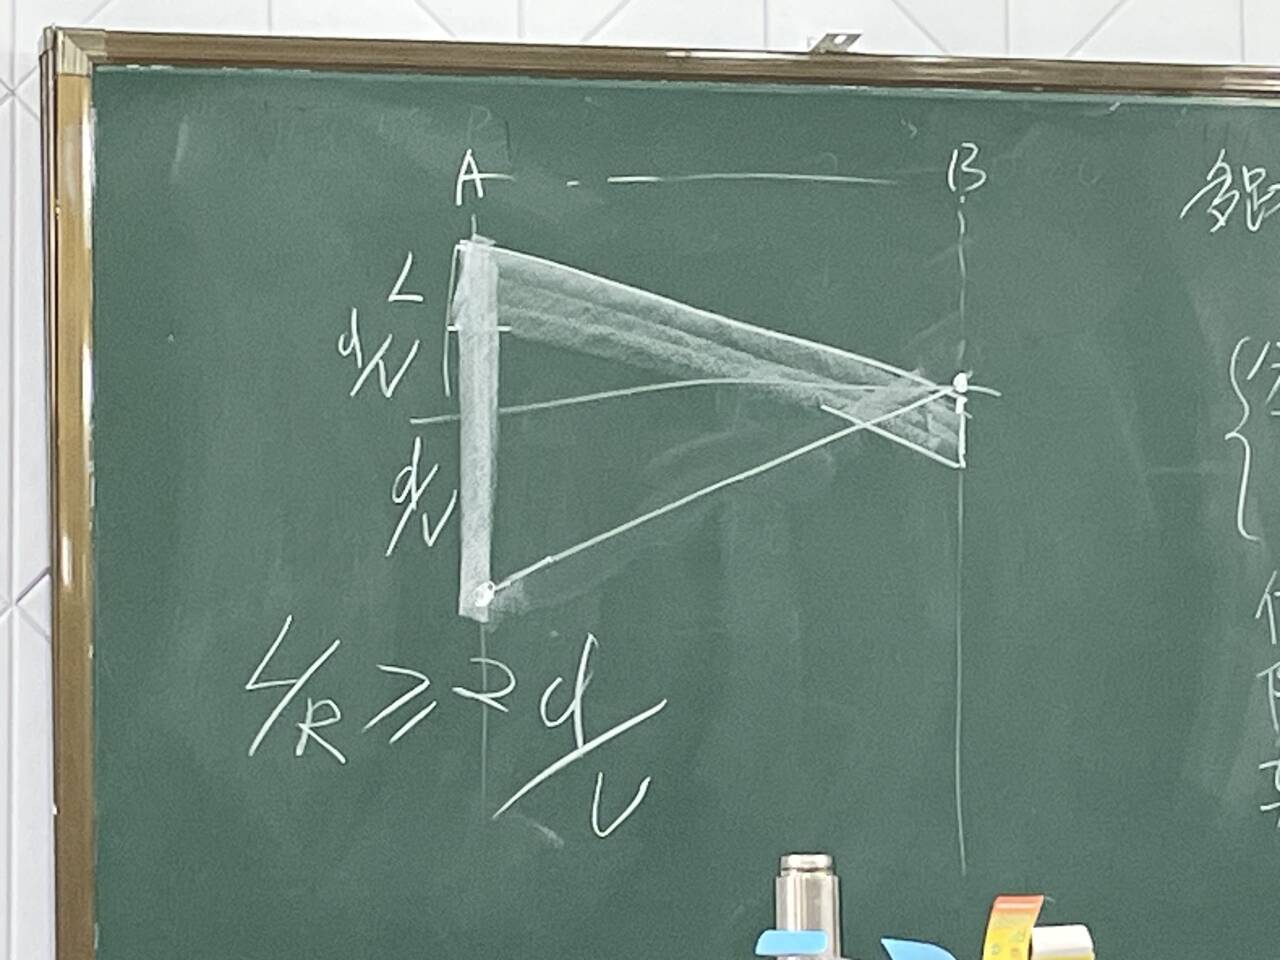 A B
多
L
d/V
d/V
L/R ≥ 2 d/V